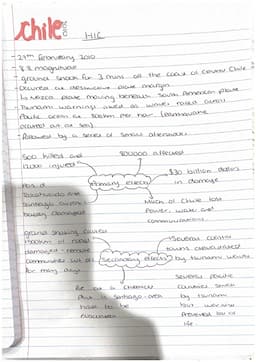 Chile 2010 HIC
- 27th February 2010
- 8.8 magnitude
- ground shook for 3 mins off the coast of central Chile
- occured at destructive plate margin
- Nazca plate moving beneath South American plate
- Tsunami warnings issued as waves raced across
Pacific ocean at 800km per hour (earthquake
occured out at sea)
- followed by a series of small aftershocks
500 killed and
12,000 injured
800000 affected
$30 billion dollars
in damage
Primary effects
Port of
Talcahuanao and
Santiago airport
badly damaged
Much of Chile lost
Power, water and
communications
ground shaking caused
1500km of roads
damaged - remote
communities cut off
for many days
Secondary effects
Several coastal
towns devastated
by tsunami waves
fire at a chemical
plant in Santiago - area
had to be
evacuated
Several pacific
countries struck
by tsunami
but warning
prevented loss of
life